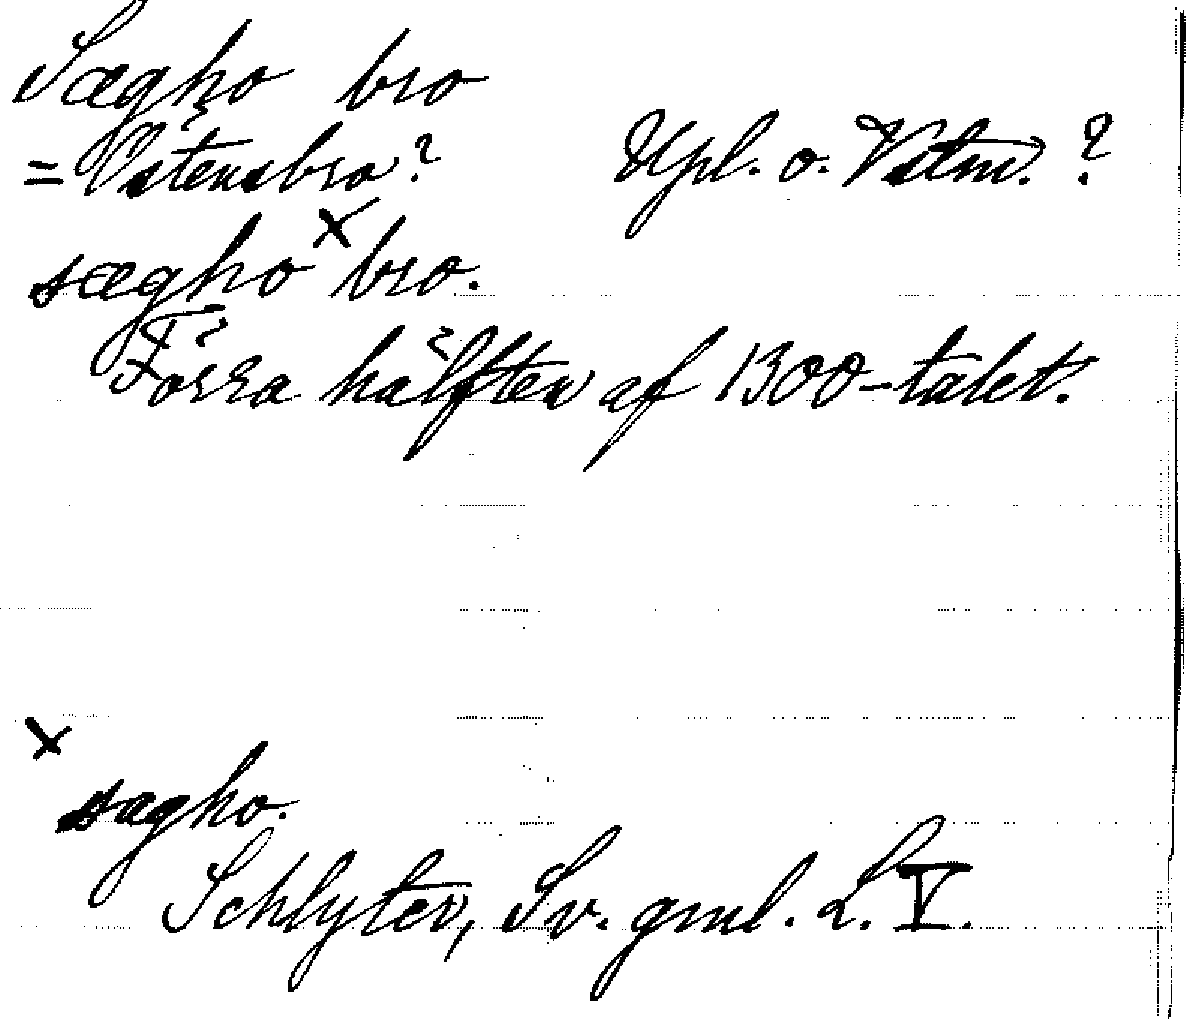 Sægho bro
= Östensbro? Upl. o. Vstm. ?
sægho × bro.
Förra hälften af 1300-talet.
× sagho.
Schlyter, Sv. gml. L. V.